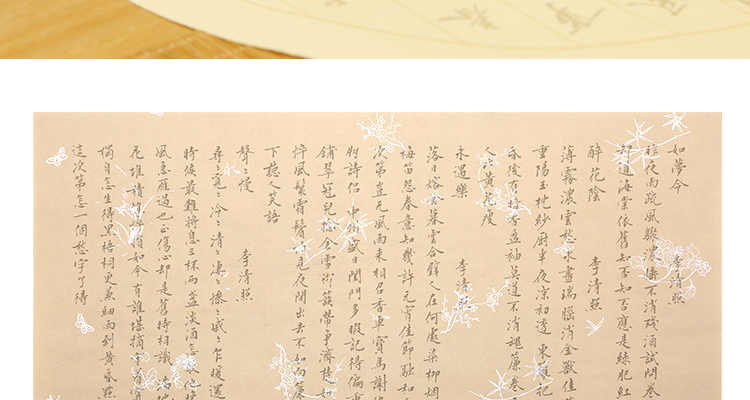 如夢令 李清照
昨夜雨疏風驟濃睡不消殘酒試問卷
道海棠依舊知否知否應是綠肥紅
醉花陰 李清照
薄霧濃雲愁永晝瑞腦消金獸佳
重陽玉枕紗厨半夜涼初透東籬
昏後有暗香盈袖莫道不消魂簾卷
人比黃花瘦
永遇樂 李清照
落日熔金暮雲合璧人在何處染柳烟
梅笛怨春意知幾許元宵佳節融和
次第豈无風雨來相召香車寶馬謝
朋詩侶中州盛日閨門多暇記得偏
鋪翠冠兒撚金雪柳簇帶爭濟楚如
悴風鬟霜鬢怕見夜間出去不如向簾
下聽人笑語
聲〻慢 李清照
尋〻覓〻冷〻清〻凄〻慘〻戚〻乍暖還
時候最難將息三杯兩盞淡酒怎敵他
風急雁過也正傷心却是舊時相識滿地
花堆積憔悴損如今有誰堪摘守
獨自怎生得黑梧桐更兼細雨到黃昏點
這次第怎一個愁字了得